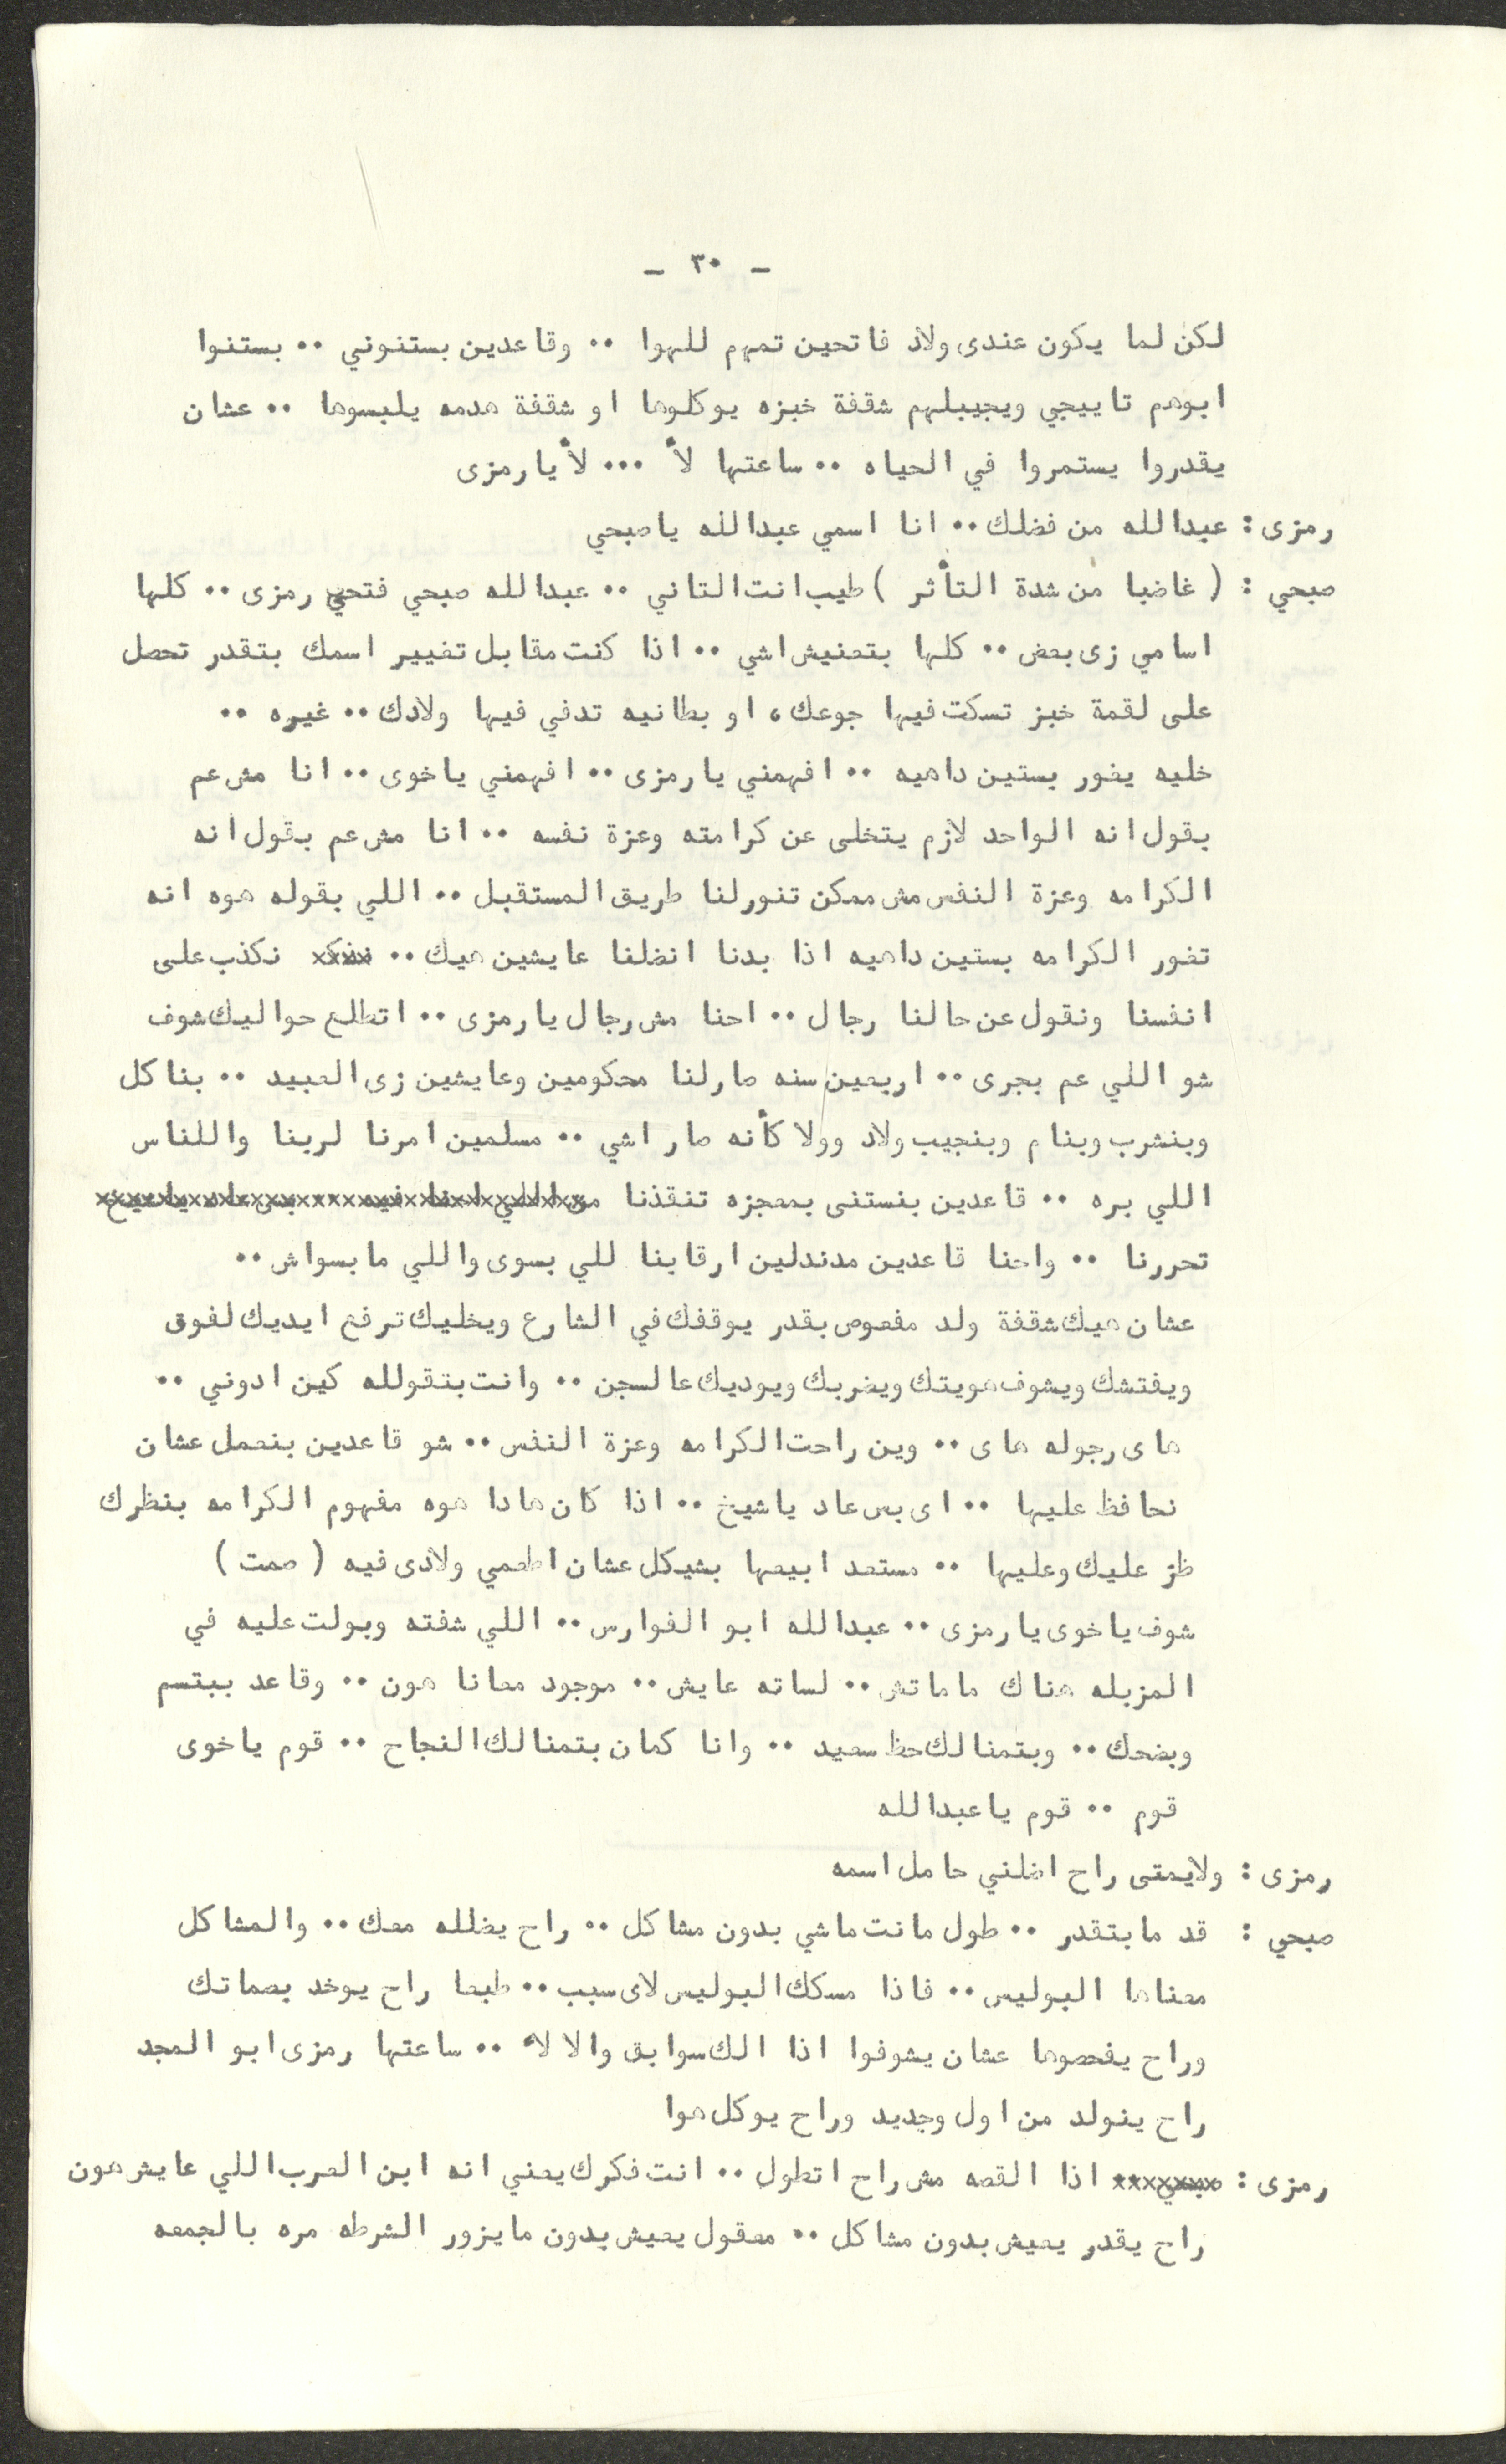 - ٣٠ -
لكن لما يكون عندى ولاد فاتحين تمهم للهوا ٠٠ وقاعدين بستنوني ٠٠ بستنوا
ابوهم تا ييجي ويجيبلهم شقفة خبزه يوكلوها او شقفة هدمه يلبسوها ٠٠ عشان
يقدروا يستمروا في الحياه ٠٠ ساعتها لأ ٠٠٠ لأ يا رمزى
رمزى : عبدالله من فضلك ٠٠ انا اسمي عبدالله ياصبحي
صبحي : ( غاضبا من شدة التأثر ) طيب انت التاني ٠٠ عبدالله صبحي فتحي رمزى ٠٠ كلها
اسامي زى بعض ٠٠ كلها بتعنيش اشي ٠٠ اذا كنت مقابل تغيير اسمك بتقدر تحصل
على لقمة خبز تسكت فيها جوعك، او بطانيه تدفي فيها ولادك ٠٠ غيره ٠٠
خليه يغور بستين داهيه ٠٠ افهمني يا رمزى ٠٠ افهمني ياخوى ٠٠ انا مش عم
بقول انه الواحد لازم يتخلى عن كرامته وعزة نفسه ٠٠ انا مش عم بقول انه
الكرامه وعزة النفس مش ممكن تنورلنا طريق المستقبل ٠٠ اللي بقوله هوه انه
تغور الكرامه بستين داهيه اذا بدنا انضلنا عايشين هيك ٠٠ نكذب على
انفسنا ونقول عن حالنا رجال ٠٠ احنا مش رجال يا رمزى ٠٠ اتطلع حواليك شوف
شو اللي عم بجرى ٠٠ اربعين سنه صارلنا محكومين وعايشين زى العبيد ٠٠ بناكل
وبنشرب وبنام وبنجيب ولاد وولا كأنه صار اشي ٠٠ مسلمين امرنا لربنا واللناس
اللي بره ٠٠ قاعدين بنستنى بمعجزه تنقذنا من اللي احنا فيه ٠٠ بس عاد يا شيخ
تحررنا ٠٠ واحنا قاعدين مدندلين ارقابنا للي بسوى واللي مابسواش ٠٠
عشان هيك شقفة ولد مفعوص بقدر يوقفك في الشارع ويخليك ترفع ايديك لفوق
ويفتشك ويشوف هويتك ويضربك ويوديك عالسجن ٠٠ وانت بتقولله كين ادوني ٠٠
هاى رجوله هاى ٠٠ وين راحت الكرامه وعزة النفس ٠٠ شو قاعدين بنعمل عشان
نحافظ عليها ٠٠ اى بس عاد ياشيخ ٠٠ اذا كان هادا هوه مفهوم الكرامه بنظرك
طز عليك وعليها ٠٠ مستعد ابيعها بشيكل عشان اطعمي ولادى فيه ( صمت )
شوف ياخوى يا رمزى ٠٠ عبدالله ابو الفوارس ٠٠ اللي شفته وبولت عليه في
المزبله هناك ماماتش ٠٠ لساته عايش ٠٠ موجود معانا هون ٠٠ وقاعد ببتسم
وبضحك ٠٠ وبتمنالك حظ سعيد ٠٠ وانا كمان بتمنالك النجاح ٠٠ قوم ياخوى
قوم ٠٠ قوم ياعبدالله
رمزى : ولايمتى راح اضلني حامل اسمه
صبحي : قد مابتقدر ٠٠ طول مانت ماشي بدون مشاكل ٠٠ راح يضلله معك ٠٠ والمشاكل
معناها البوليس ٠٠ فاذا مسكك البوليس لاى سبب ٠٠ طبعا راح يوخد بصماتك
وراح يفحصوها عشان يشوفوا اذا الك سوابق والا لأ ٠٠ ساعتها رمزى ابو المجد
راح ينولد من اول وجديد وراح يوكل هوا
رمزى : صبحي اذا القصه مش راح اتطول ٠٠ انت فكرك يعني انه ابن العرب اللي عايش هون
راح يقدر يعيش بدون مشاكل ٠٠ معقول يعيش بدون مايزور الشرطه مره بالجمعه